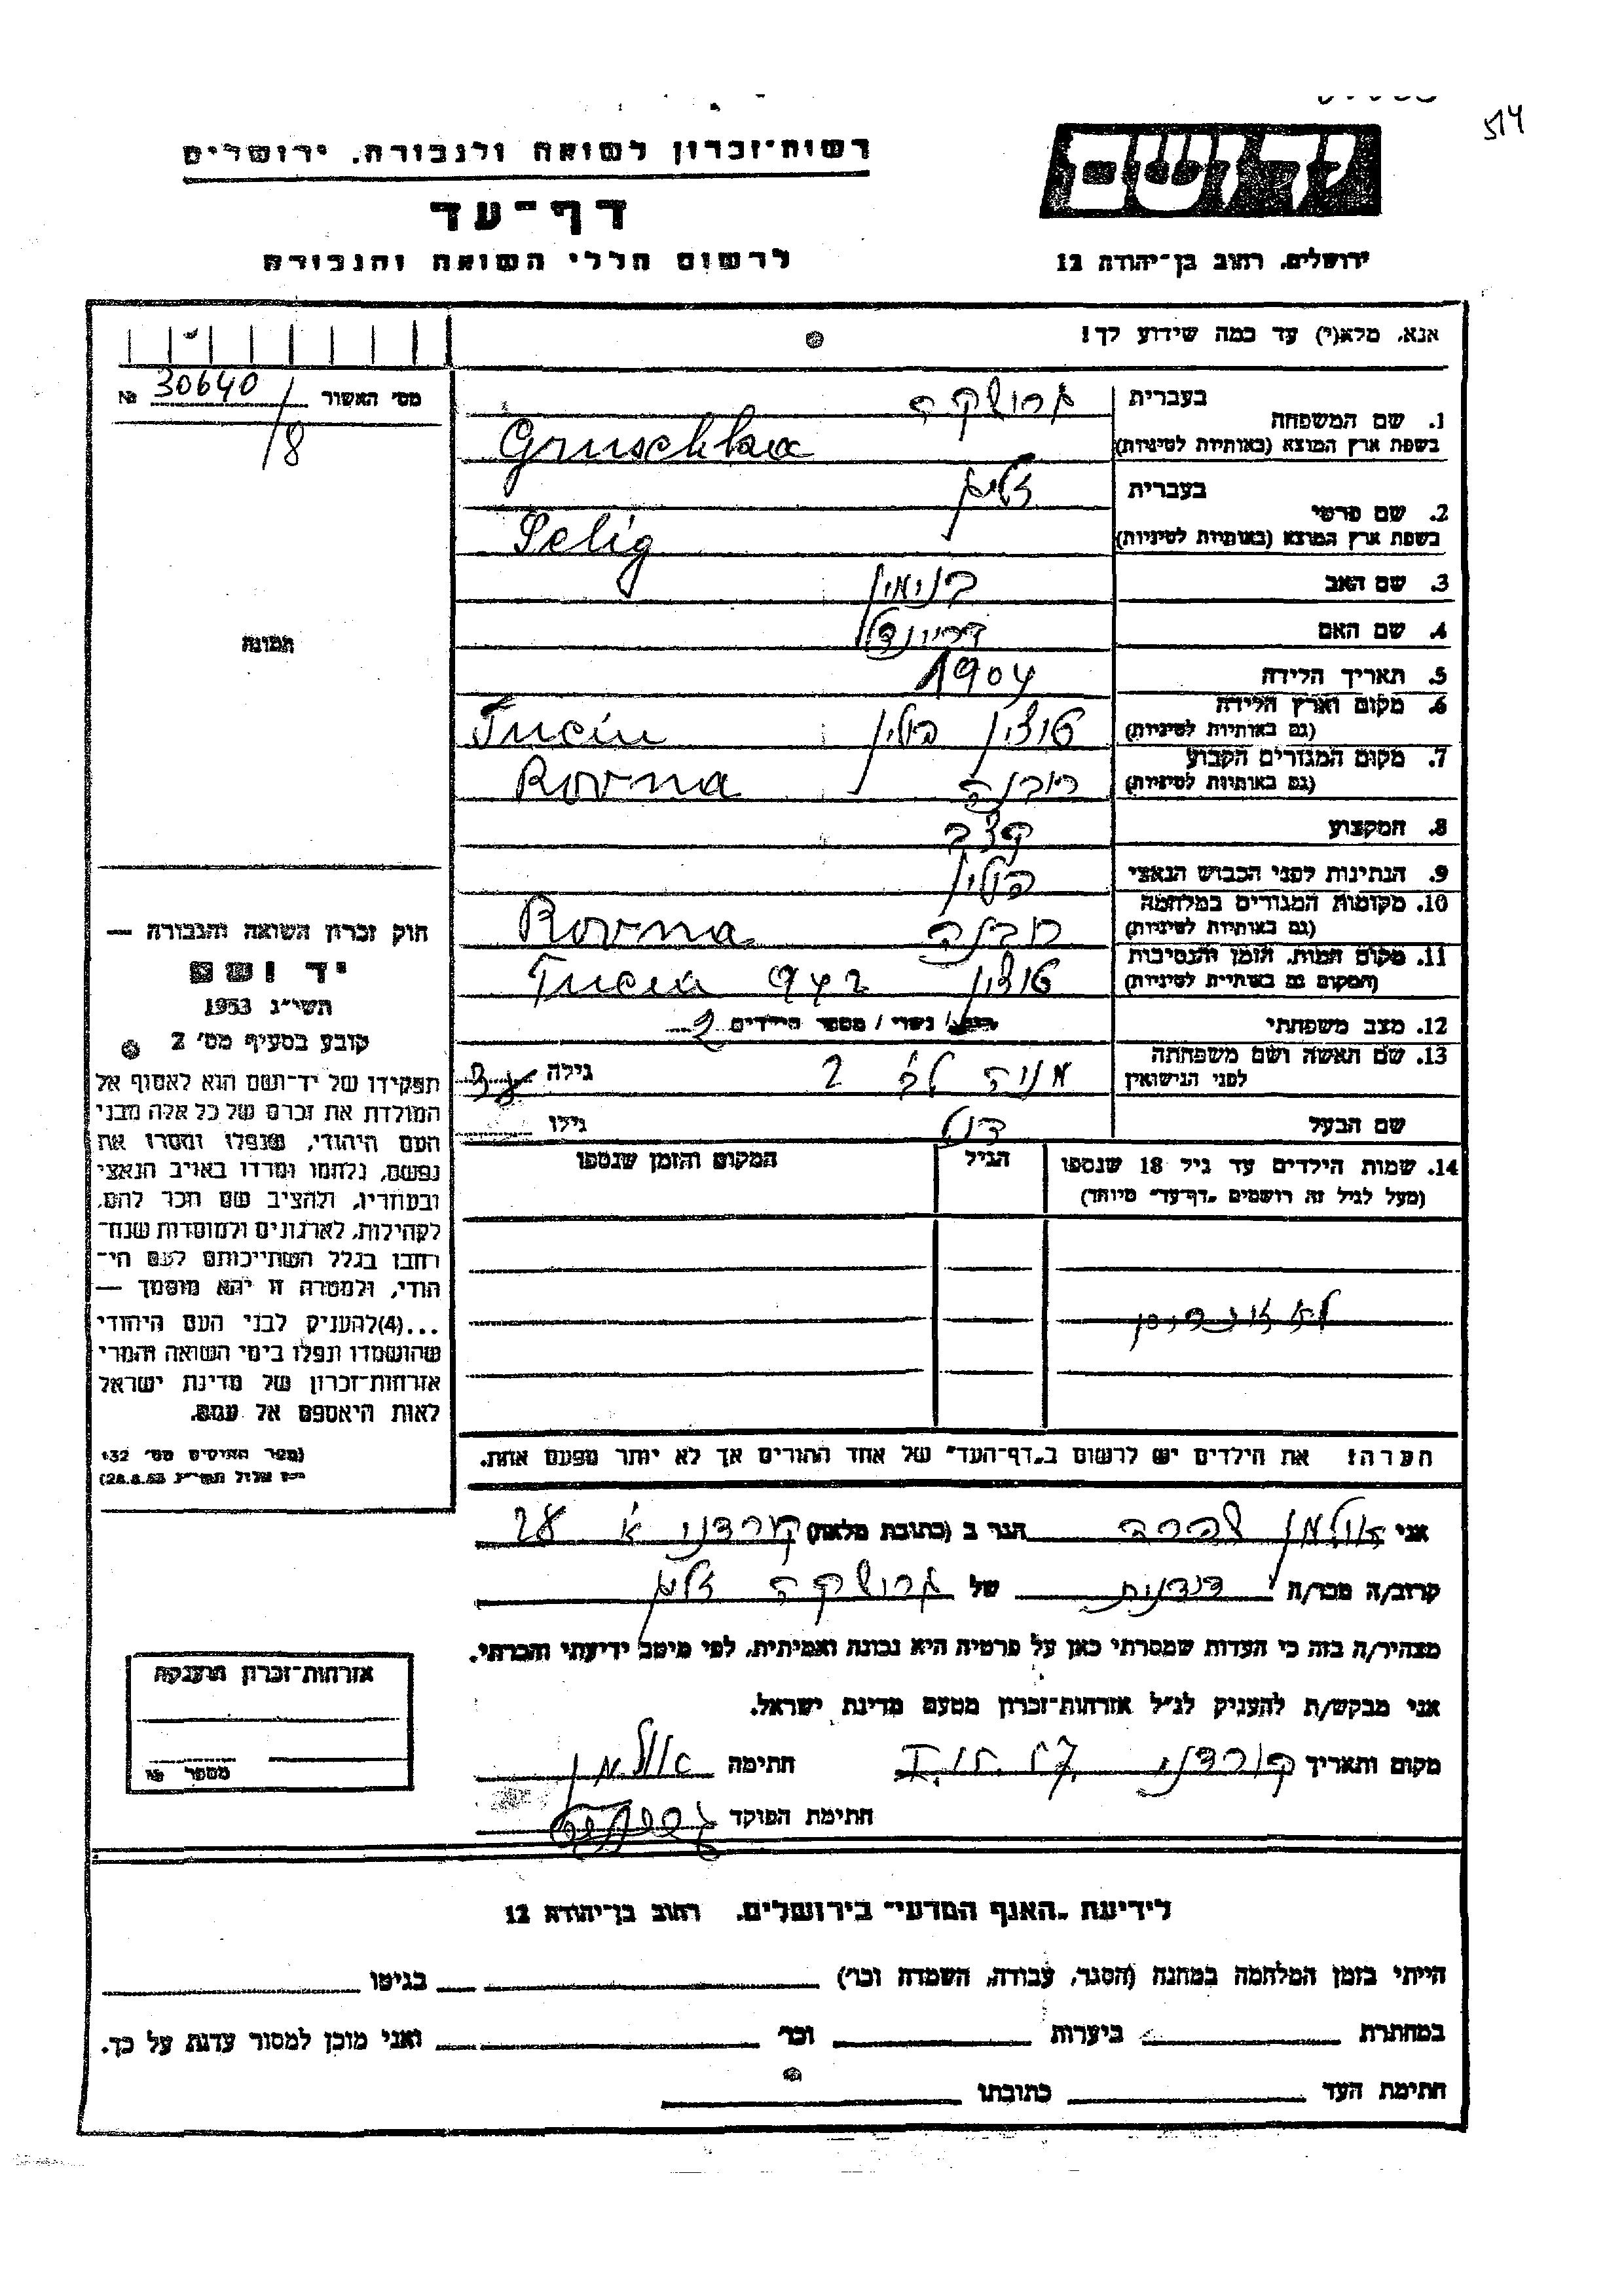 514
רשות־זכרון לשואה ולגבורה, ירושלים
דף־עד
לרשום חללי השואה והגבורה
יד ושם
ירושלים, רחוב בן־יהודה 12
אנא, מלא(י) עד כמה שידוע לך!
מס' האשור № 30640/8
תמונה
1. שם המשפחה בעברית גרושקה
בשפת ארץ המוצא (באותיות לטיניות) Gruschka
2. שם פרטי בעברית זליג
בשפת ארץ המוצא (באותיות לטיניות) Selig
3. שם האב בנימין
4. שם האם
5. תאריך הלידה 1904
6. מקום וארץ הלידה
(גם באותיות לטיניות) טוצין פולין Tucin
7. מקום המגורים הקבוע
(גם באותיות לטיניות) רובנה Rovna
8. המקצוע קצב
9. הנתינות לפני הכבוש הנאצי פולין
10. מקומות המגורים במלחמה
(גם באותיות לטיניות) רובנה Rovna
11. מקום המות, הזמן והנסיבות
(המקום גם באותיות לטיניות) טוצין 942 Tucin
12. מצב משפחתי נשוי / מספר הילדים 2
13. שם האשה ושם משפחתה
לפני הנישואין מניה גילה
שם הבעל גילו
14. שמות הילדים עד גיל 18 שנספו
(מעל לגיל זה רושמים „דף־עד" מיוחד)
הגיל
המקום והזמן שנספו
הערה: את הילדים יש לרשום ב„דף־העד" של אחד ההורים אך לא יותר מפעם אחת.
חוק זכרון השואה והגבורה —
יד ושם
תשי"ג 1953
קובע בסעיף מס' 2
תפקידו של יד־ושם הוא לאסוף אל
המולדת את זכרם של כל אלה מבני
העם היהודי, שנפלו ומסרו את
נפשם, נלחמו ומרדו באויב הנאצי
ובעוזריו, ולהציב שם וזכר להם,
לקהילות, לארגונים ולמוסדות שנח־
רבו בגלל השתייכותם לעם הי־
הודי, ולמטרה זו יהא מוסמך —
...(4)להעניק לבני העם היהודי
שהושמדו ונפלו בימי השואה והמרי
אזרחות־זכרון של מדינת ישראל
לאות היאספם אל עמם.
(ספר החוקים מס' 132
י"ז אלול תשי"ג 28.8.53)
אני אולמן הגר ב (כתובת מלאה) קורדני א 28
קרוב/ה מכר/ה דודנית של גרושקה זליג
מצהיר/ה בזה כי העדות שמסרתי כאן על פרטיה היא נכונה ואמיתית, לפי מיטב ידיעתי והכרתי.
אני מבקש/ת להעניק לנ"ל אזרחות־זכרון מטעם מדינת ישראל.
מקום ותאריך קורדני חתימה אולמן
חתימת הפוקד
אזרחות־זכרון הוענקה
מספר №
לידיעת „האגף המדעי" בירושלים, רחוב בן־יהודה 12
הייתי בזמן המלחמה במחנה (הסגר, עבודה, השמדה וכו') בגיטו
במחתרת ביערות וכו' ואני מוכן למסור עדות על כך.
חתימת העד כתובתו